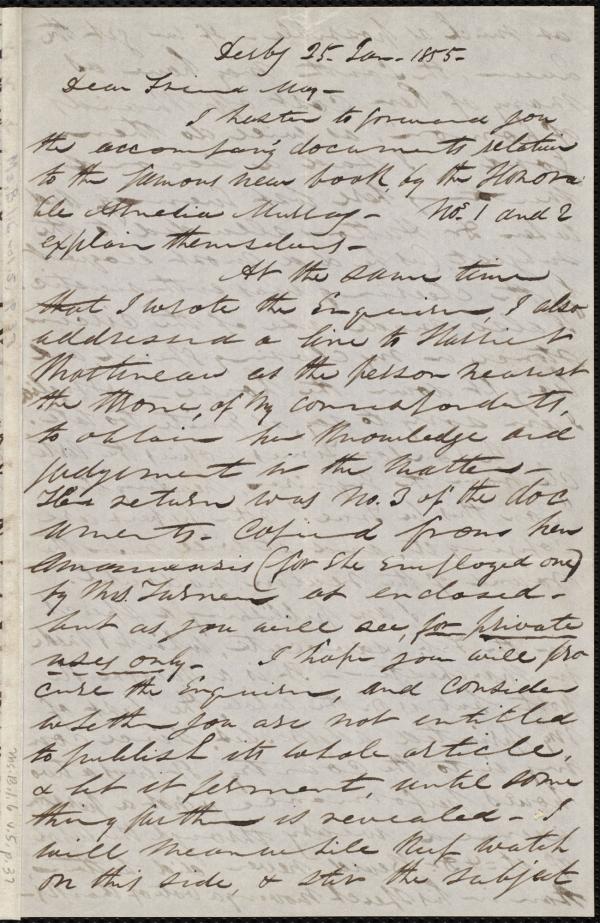 Derby 25. Jan. 1855-
Dear Friend May-
I hasten to forward you
the accompang documents relative
to the famous new book by the Honora
ble Amelia Murray- No. 1 and 2
explain themselves-
At the same time
that I wrote the Enquirer, I also
addressed a line to Harriet
Martineau as the person nearest
the throne, of my correspondents,
to obtain her knowledge and
judgement in the matter-
Her return was No. 3 of the doc
uments- Copied from her
Amanuensis (for she employed one)
by Mrs. Turner as enclosed-
but as you will see, for private
uses only- I hope you will pro
cure the Enquirer, and consider
whether you are not entitled
to publish its whole article,
& let it ferment, until some
thing further is revealed- I
will meanwhile keep watch
on this side, & stir the subject
Ms. B.1.6 v.5, p.37